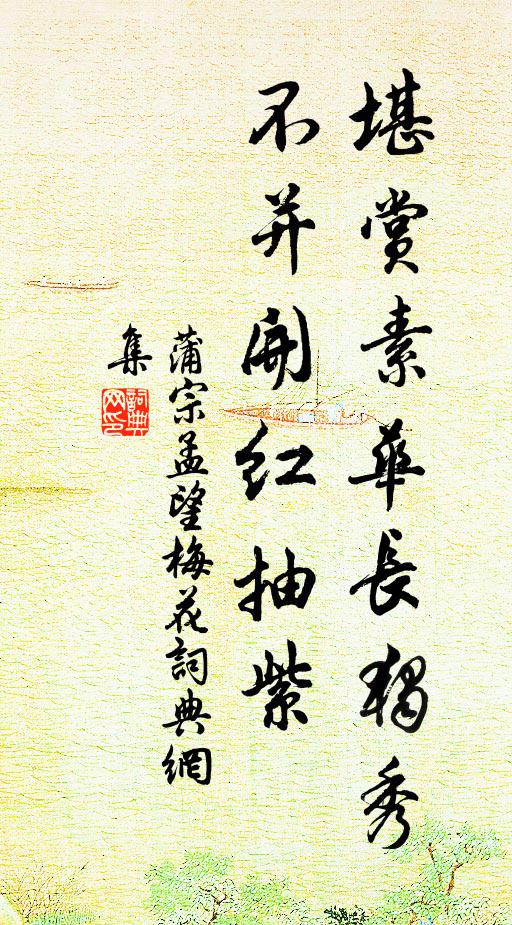 堪賞素華長獨秀
不并開紅抽紫
蒲宗孟望梅花詞典網
集
詞典
网印